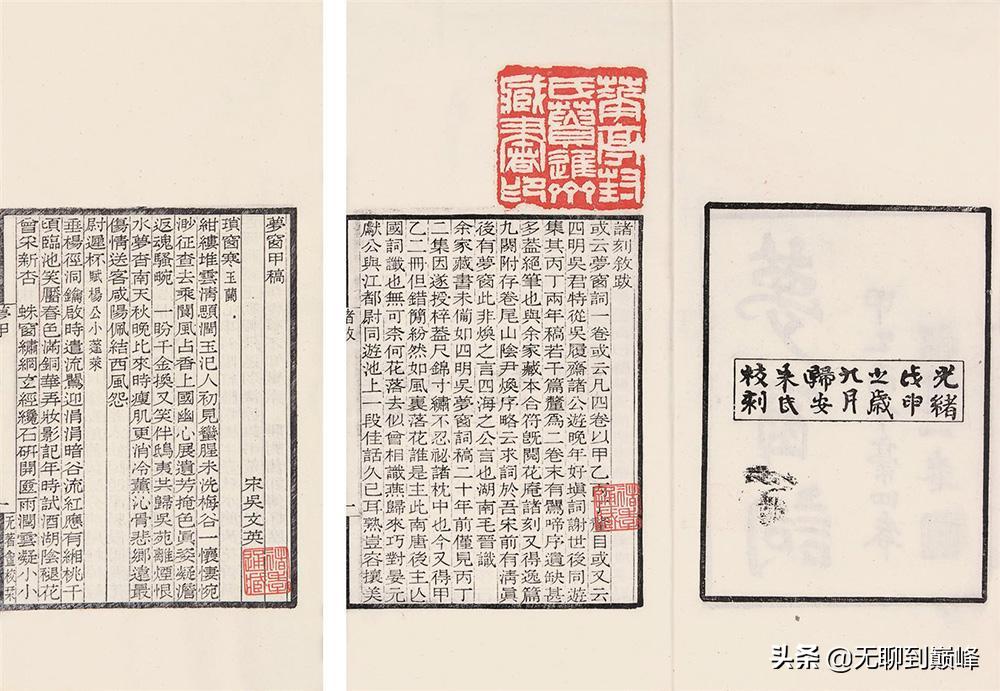 光緒
戊申
之歲
九月
歸安
朱氏
校刻
華亭封
氏簣進齋
藏書印
諸刻敘跋
或云夢窗詞一卷或云凡四卷以甲乙丙丁釐目或又云
四明吳君特從吳履齋諸公遊晚年好塡詞謝世後同遊
集其丙丁兩年稿若干篇釐爲二卷末有鶯啼序遺缺甚
多葢絕筆也與余家藏本合符旣閱花庵諸刻又得逸篇
九闋附存卷尾山陰尹煥序略云求詞於吾宋前有淸眞
後有夢窗此非煥之言四海之公言也湖南毛晉識
余家藏書未備如四明吳夢窗詞稿二十年前僅見丙丁
二集因遂授梓葢尺錦寸繡不忍祕諸枕中也今又得甲
乙二冊但錯簡紛然如風裏落花誰是主此南唐後主亾
國詞讖也無可柰何花落去似曾相識燕歸來巧對晏元
獻公與江都尉同遊池上一段佳話久已耳熟豈容攘美
諸敘
一
夢窗甲稿 宋吳文英
瑣窗寒玉蘭
紺縷堆雲淸顋潤玉氾人初見蠻腥未洗梅谷一懷悽惋
渺征查去乘閬風占香上國幽心展遺芳掩色眞姿凝澹
返魂騷畹 一盼千金換又笑伴鴟夷共歸吳苑離煙恨
水夢杳南天秋晚比來時瘦肌更消冷薰沁骨悲鄉遠最
傷情送客咸陽佩結西風怨
尉遲杯賦楊公小蓬萊
垂楊徑洞鑰啟時遣流鶯迎涓涓暗谷流紅應有緗桃千
頃臨池笑靨春色滿銅華弄妝影記年時試酒湖陰褪花
曾采新杏 蛛窗繡網玄經纔石硏開匳雨潤雲凝小小
夢甲
一
无著盦校栞
头条 @无聊到巅峰